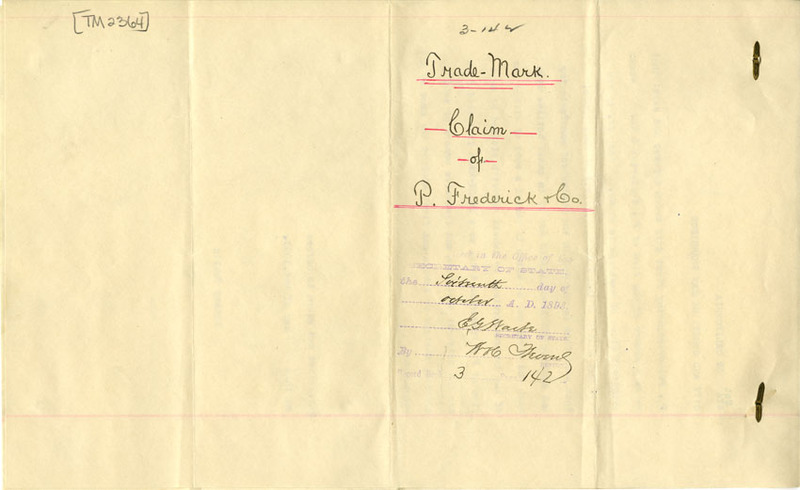 [TM2364]
3-142
Trade-Mark.
Claim
of
P. Frederick & Co.
in the Office of the
SECRETARY OF STATE,
the Sixteenth day of
October A. D. 189
E. G. Waite
SECRETARY OF STATE
By
3 142